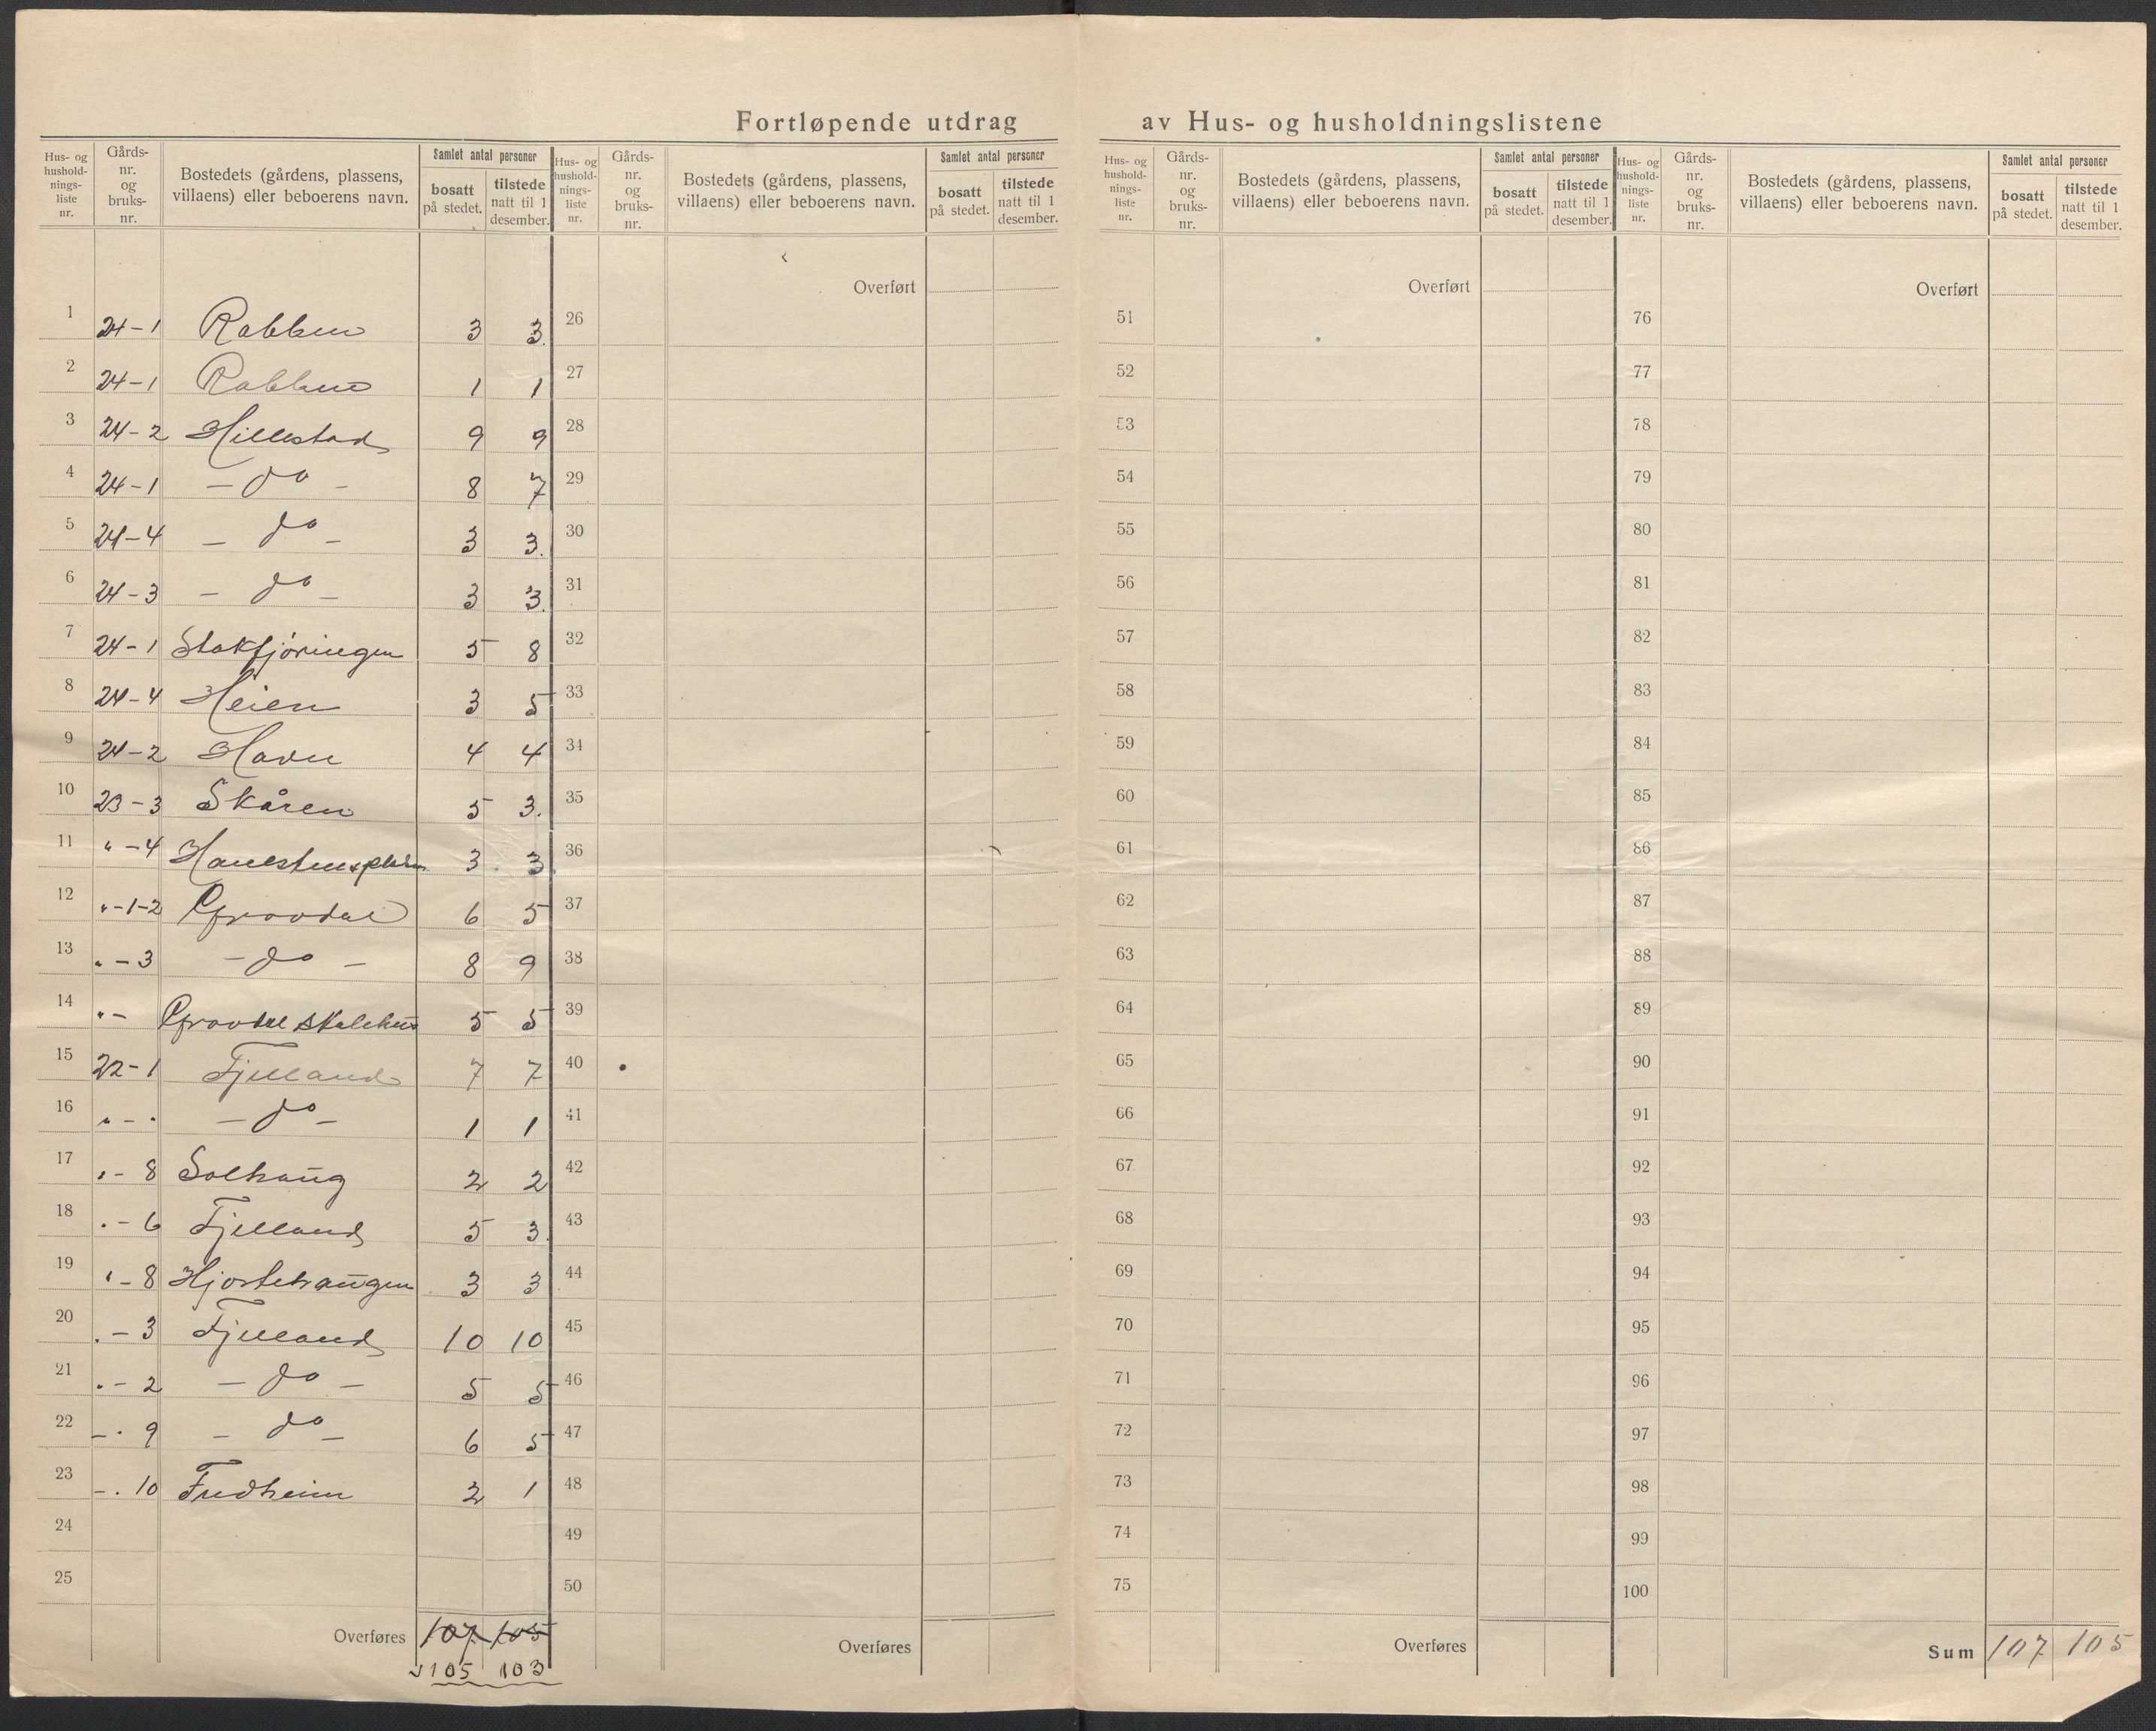 Fortløpende utdrag av Hus- og husholdningslistene
Hus- og hushold- nings- liste nr. | Gårds- nr. og bruks- nr. | Bostedets (gårdens, plassens, villaens) eller beboerens navn. | Samlet antal personer | bosatt på stedet. | tilstede natt til 1 desember.
Hus- og hushold- nings- liste nr. | Gårds- nr. og bruks- nr. | Bostedets (gårdens, plassens, villaens) eller beboerens navn. | Samlet antal personer | bosatt på stedet. | tilstede natt til 1 desember.
Hus- og hushold- nings- liste nr. | Gårds- nr. og bruks- nr. | Bostedets (gårdens, plassens, villaens) eller beboerens navn. | Samlet antal personer | bosatt på stedet. | tilstede natt til 1 desember.
Hus- og hushold- nings- liste nr. | Gårds- nr. og bruks- nr. | Bostedets (gårdens, plassens, villaens) eller beboerens navn. | Samlet antal personer | bosatt på stedet. | tilstede natt til 1 desember.
Overført Overført Overført
1 24-1 Rabben 3 3. 26 51 76
2 24-1 Rabben 1 1 27 52 77
3 24-2 Hillestad 9 9 28 53 78
4 24-1 - do - 8 7 29 54 79
5 24-4 - do - 3 3. 30 55 80
6 24-3 - do - 3 3. 31 56 81
7 24-1 Stakfjøringen 5 8 32 57 82
8 24-4 Heien 3 5 33 58 83
9 24-2 Havn 4 4 34 59 84
10 23-3 Skåren 5 3. 35 60 85
11 " -4 3 3 36 61 86
12 "-1-2 Grovdal 6 5 37 62 87
13 " - 3 - do - 8 9 38 63 88
14 " - Grovdal skolehus 5 5 39 64 89
15 22-1 Fjelland 7 7 40 65 90
16 " - " - do - 1 1 41 66 91
17 " - 8 Solhaug 2 2 42 67 92
18 " - 6 Fjelland 5 3. 43 68 93
19 " - 8 Hjortehaugen 3 3 44 69 94
20 " - 3 Fjelland 10 10 45 70 95
21 " - 2 - do - 5 5 46 71 96
22 - " 9 - do - 6 5 47 72 97
23 - " 10 Fredheim 2 1 48 73 98
24 49 74 99
25 50 75 100
Overføres 107 105 Overføres Overføres Sum 107 105
105 103